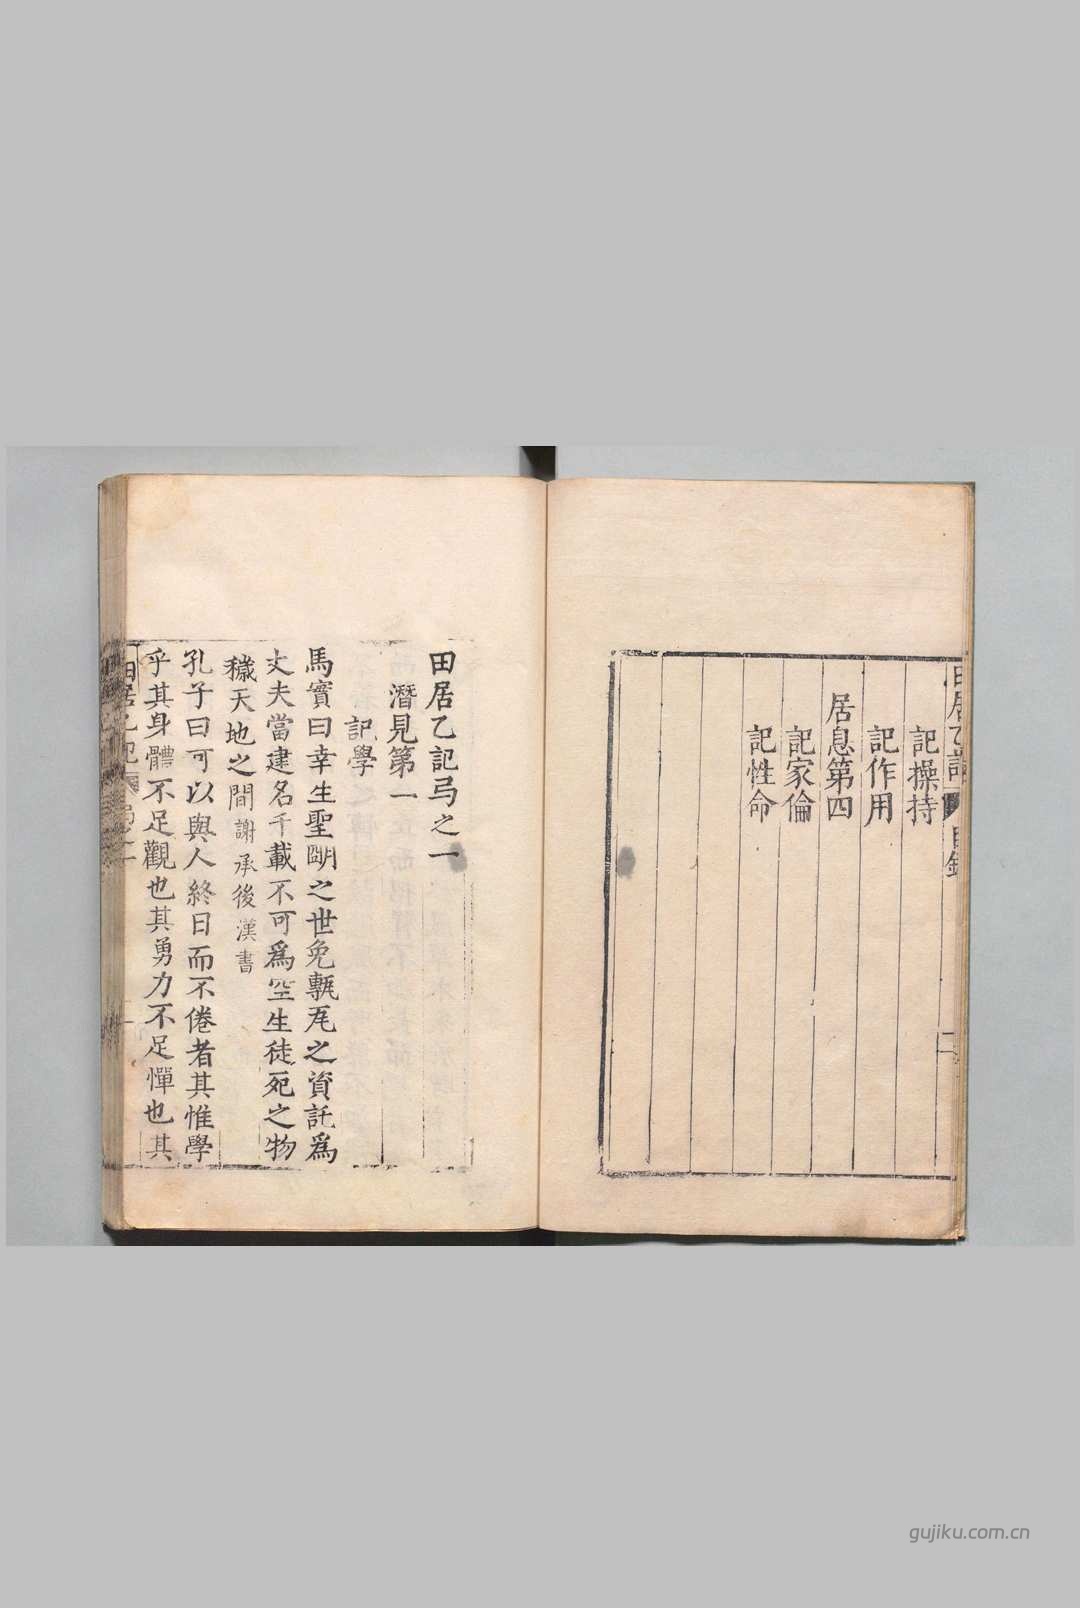 田居乙記
目錄
二
記操持
記作用
居息第四
記家倫
記性命
田居乙記弓之一
潛見第一
記學
馬實曰幸生聖朙之世免甎瓦之資託為
丈夫當建名千載不可為空生徒死之物
穢天地之間謝承後漢書
孔子曰可以與人終日而不倦者其惟學
乎其身體不足觀也其勇力不足憚也其
田居乙記
gujiku.com.cn